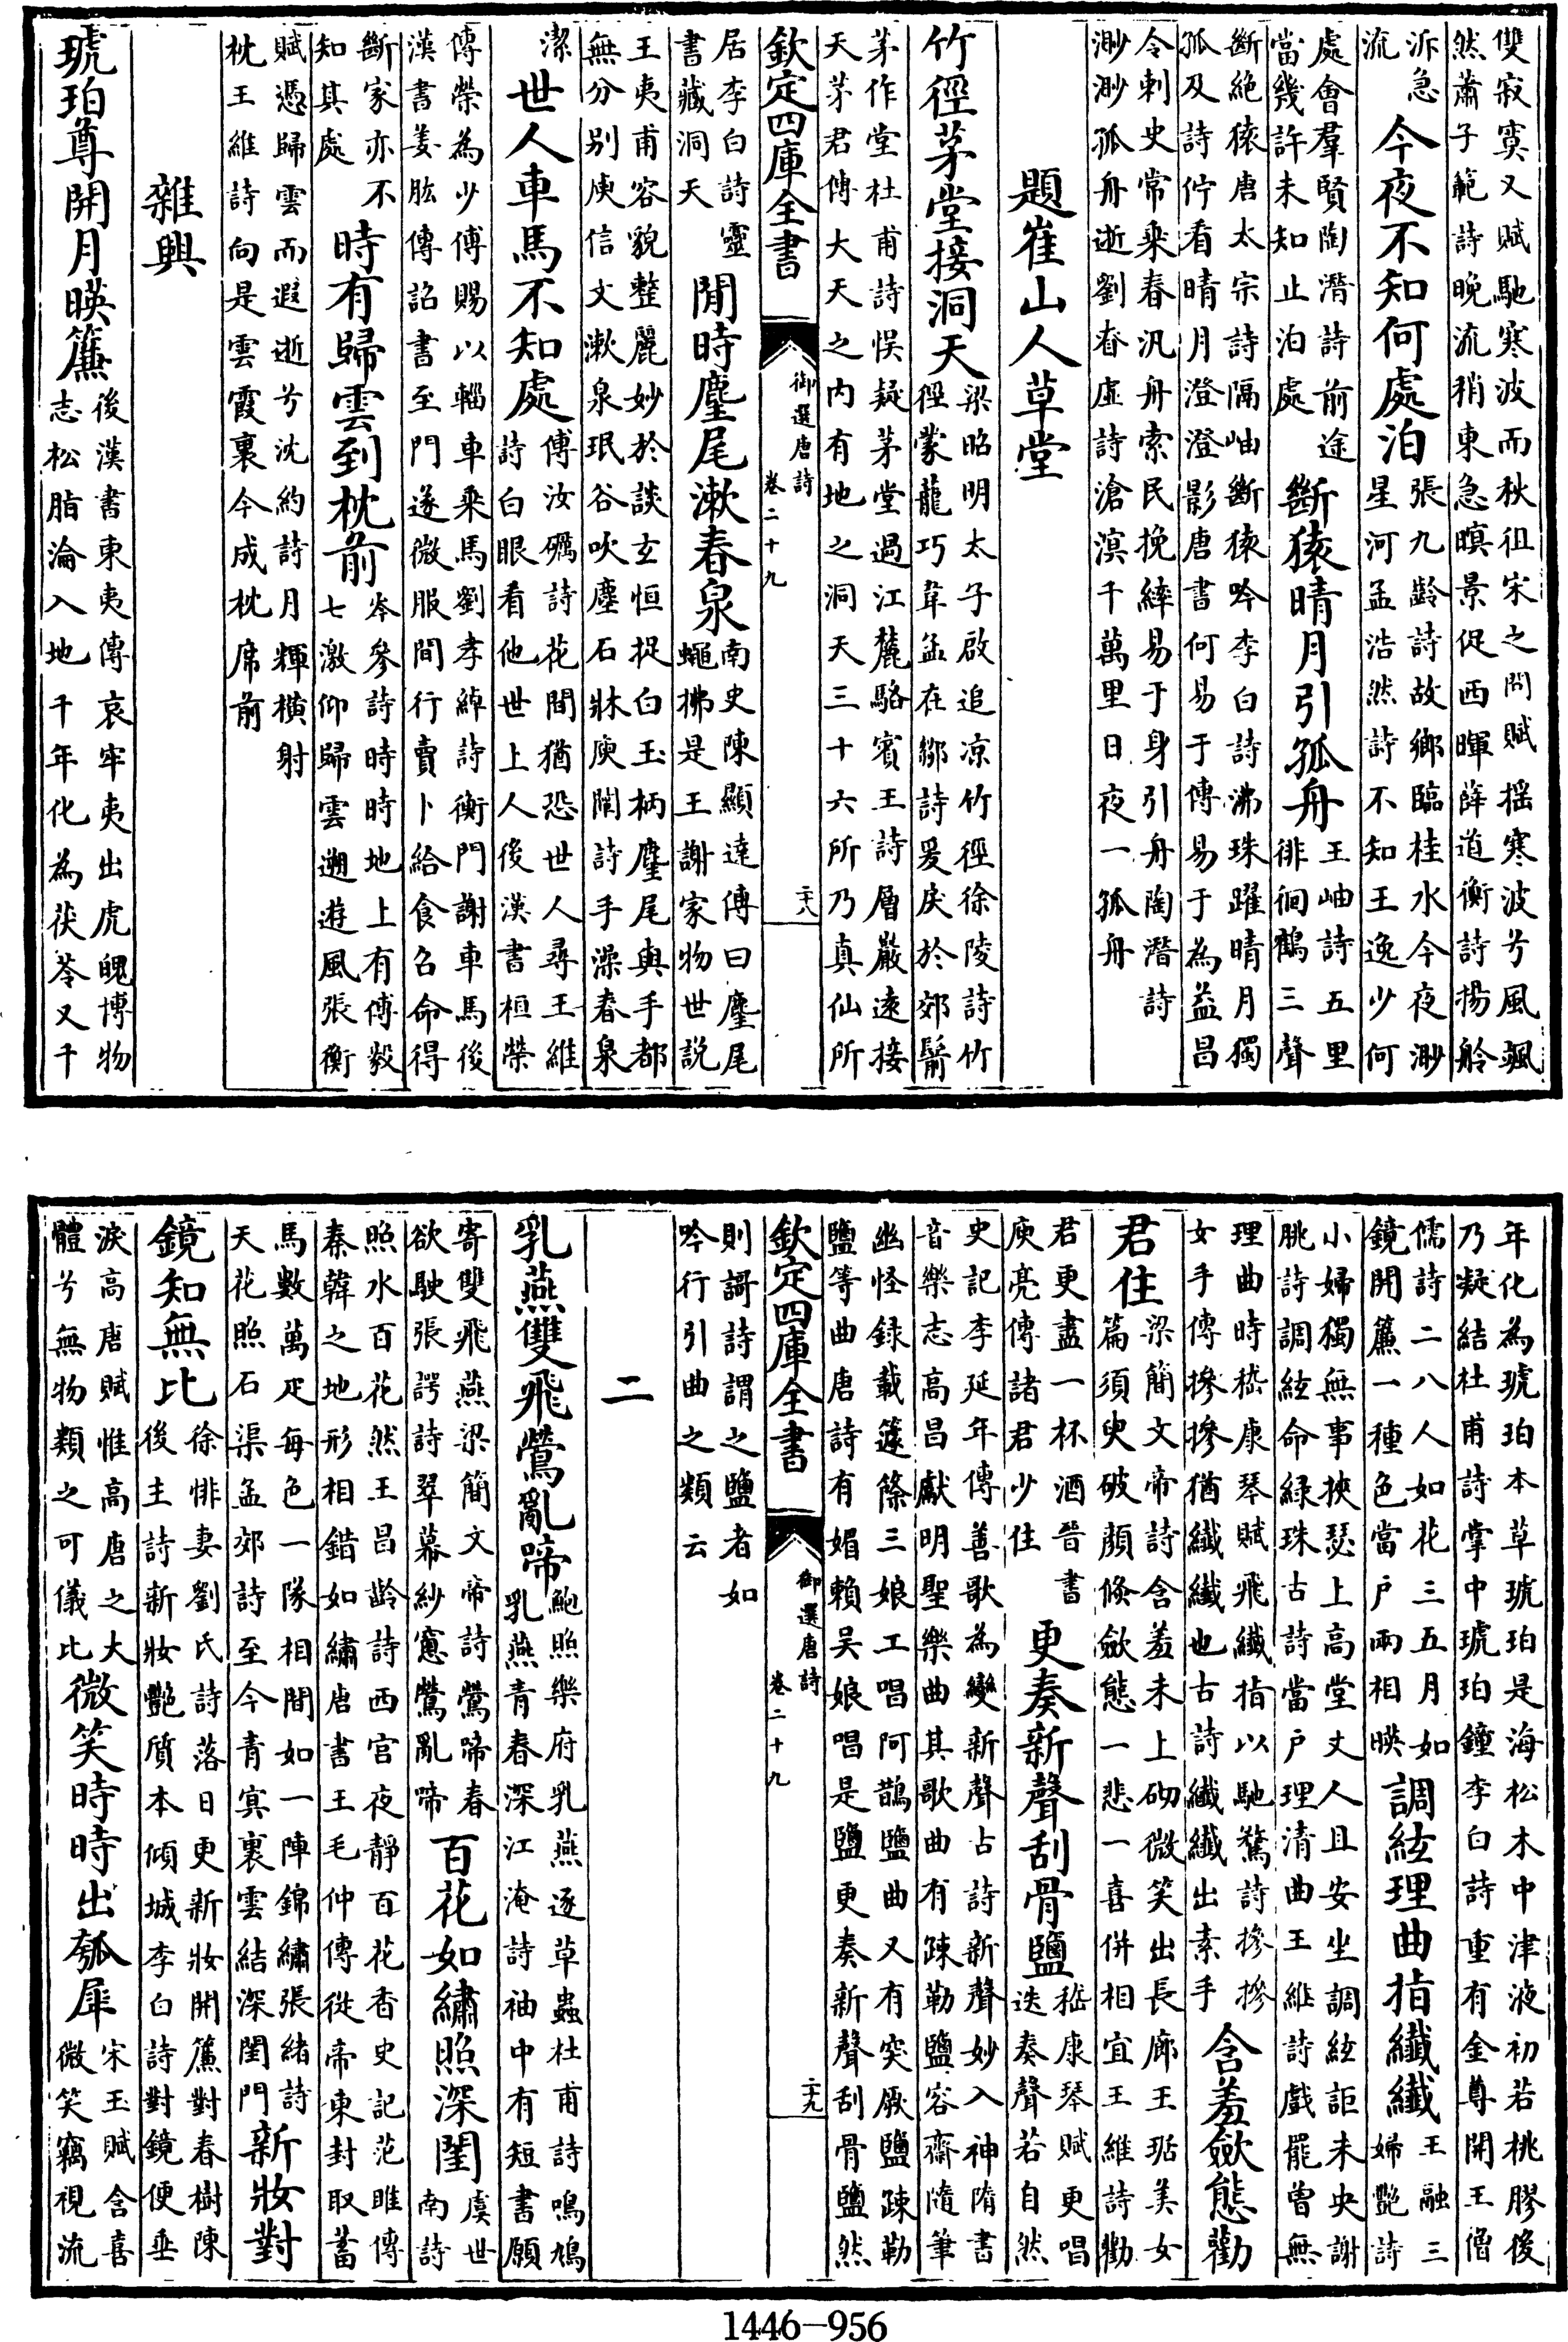 雙寂寞又賦馳寒波而秋徂宋之問賦揺寒波兮風颯
然蕭子範詩晚流稍東急暝景促西暉薛道衡詩揚舲
泝急
流
今夜不知何處泊張九齡詩故鄉臨桂水今夜渺
星河孟浩然詩不知王逸少何
處會羣賢陶潛詩前途
當幾許未知止泊處
斷猿晴月引孤舟王岫詩五里
徘徊鶴三聲
斷絶猿唐太宗詩隔岫斷猿吟李白詩沸珠躍晴月獨
孤及詩佇看晴月澄澄影唐書何易于傳易于為益昌
令刺史常乘春汎舟索民挽繂易于身引舟陶潛詩
渺渺孤舟逝劉眘虛詩滄溟千萬里日夜一孤舟
題崔山人草堂
竹徑茅堂接洞天梁昭明太子啟追凉竹徑徐陵詩竹
徑蒙籠巧韋孟在鄒詩爰戾於郊鬋
茅作堂杜甫詩悞疑茅堂過江麓駱賓王詩層巖遠接
天茅君傳大天之內有地之洞天三十六所乃真仙所
欽定四庫全書
御選唐詩
卷二十九
二十八
居李白詩靈
書藏洞天
閒時麈尾漱春泉南史陳顯達傳曰麈尾
蠅拂是王謝家物世説
王夷甫容貌整麗妙於談玄恒捉白玉柄麈尾與手都
無分别庾信文漱泉珉谷吹塵石牀庾闡詩手澡春泉
潔
世人車馬不知處傅汝礪詩花間猶恐世人尋王維
詩白眼看他世上人後漢書桓榮
傳榮為少傅賜以輜車乘馬劉孝綽詩衡門謝車馬後
漢書姜肱傳詔書至門遂微服間行賣卜給食召命得
斷家亦不
知其處
時有歸雲到枕前岑參詩時時地上有傅毅
七激仰歸雲遡遊風張衡
賦憑歸雲而遐逝兮沈約詩月輝橫射
枕王維詩向是雲霞裏今成枕席前
雜興
琥珀尊開月暎簾後漢書東夷傳哀牢夷出虎魄博物
志松脂淪入地千年化為茯苓又千
年化為琥珀本草琥珀是海松木中津液初若桃膠後
乃凝結杜甫詩掌中琥珀鐘李白詩重有金尊開王僧
儒詩二八人如花三五月如
鏡開簾一種色當户兩相暎
調絃理曲指纖纖王融三
婦艷詩
小婦獨無事挾瑟上高堂丈人且安坐調絃詎未央謝
朓詩調絃命緑珠古詩當户理清曲王維詩戲罷曾無
理曲時嵇康琴賦飛纖指以馳騖詩摻摻
女手傳摻摻猶纖纖也古詩纖纖出素手
含羞斂態勸
君住梁簡文帝詩含羞未上砌微笑出長廊王琚美女
篇須臾破顔倏斂態一悲一喜併相宜王維詩勸
君更盡一杯酒晉書
庾亮傳諸君少住
更奏新聲刮骨鹽嵇康琴賦更唱
迭奏聲若自然
史記李延年傳善歌為變新聲古詩新聲妙入神隋書
音樂志高昌獻明聖樂曲其歌曲有踈勒鹽容齋隨筆
幽怪録載籧篨三娘工唱阿鵲鹽曲又有突厥鹽踈勒
鹽等曲唐詩有媚賴吴娘唱是鹽更奏新聲刮骨鹽然
欽定四庫全書
御選唐詩
卷二十九
二十九
則謌詩謂之鹽者如
吟行引曲之類云
二
乳燕雙飛鶯亂啼鮑照樂府乳燕逐草蟲杜甫詩鳴鳩
乳燕青春深江淹詩袖中有短書願
寄雙飛燕梁簡文帝詩鶯啼春
欲駛張諤詩翠幕紗窻鶯亂啼
百花如繡照深閨虞世
南詩
照水百花然王昌齡詩西宫夜靜百花香史記范雎傳
秦韓之地形相錯如繡唐書王毛仲傳從帝東封取蓄
馬數萬疋每色一隊相間如一陣錦繡張緒詩
天花照石渠孟郊詩至今青冥裏雲結深閨門
新妝對
鏡知無比徐悱妻劉氏詩落日更新妝開簾對春樹陳
後主詩新妝艷質本傾城李白詩對鏡便垂
淚高唐賦惟高唐之大
體兮無物類之可儀比
微笑時時出瓠犀宋玉賦含喜
微笑竊視流
1446-956